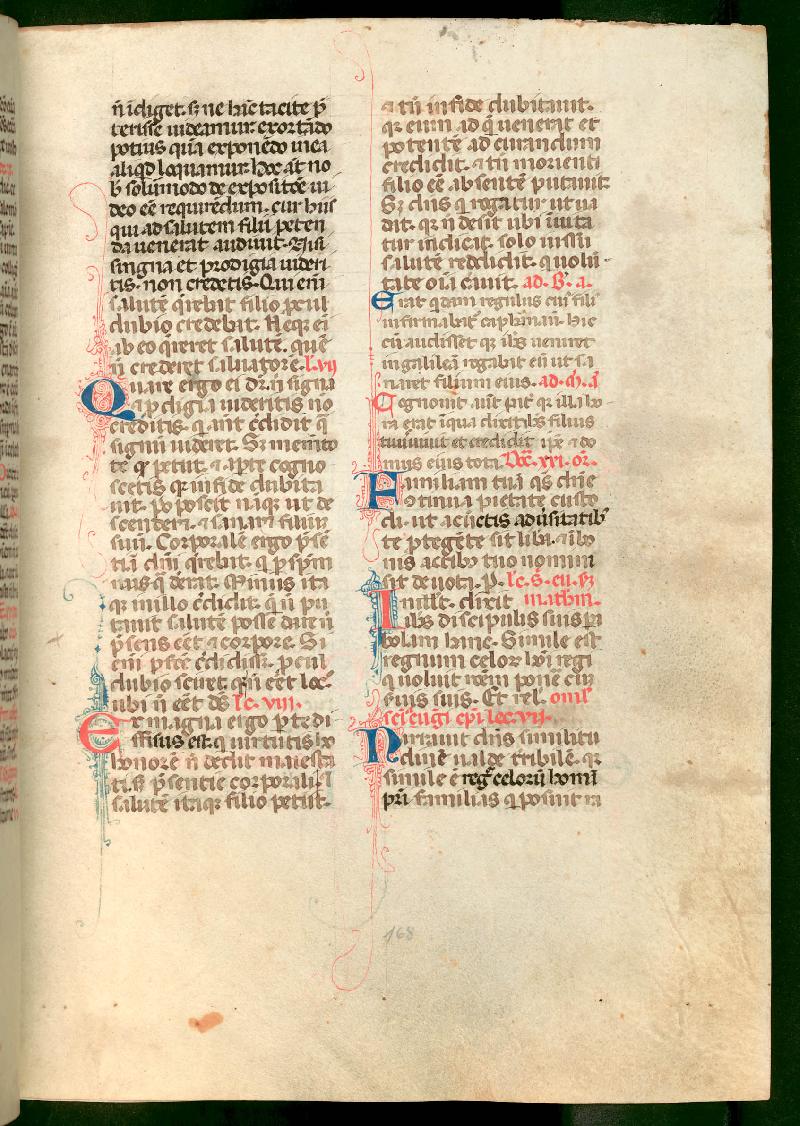 n̄ īdiget. sȝ ne hūc tacite p̱
terisse uideamur exortādo
potius quā exponēdo uica
aliqd loquamur. hoc āt no
b̵ solūmodo de expositōe ui-
deo eē requirēdum. cur hiis
qui ad salutem filii peten
da uenerat audiuit. Nisi
singna et prodigia uideri
tis. non credetis. Qui eni
salutē q̄rebit filio p̱cul
dubio credebat. Neqȝ ei
ab eo q̄reret salutē. quē
n̄ crederet saluatorē. l. vii
Quare ergo ei dr̄. n̄ signa
⁊ p̱digia uideritis nō
creditis. q̱ ant̄ c̄didit q̄
signū uideret. Sȝ memēto
te qd̄ petiit. ⁊ ap̱te cogno
scetis qȝ in fide dubita
uit. Poposcit nāqȝ ut de
scenderet. ⁊ sanaret filium
suū. Corporalē ergo p̄sē
tiā dn̄i q̄rebat. q̱ p̱ sp̄m
nusqȝ deerat. Minus itaqȝ
in illo c̄didit. quē n̄ pu
tauit salutē posse dare n̄
p̄sens eēt ⁊ corpore. Si
eni p̱fcē c̄didisset. p̱cul
dubio sciret. qȝ n̄ eēt loc̄
ubi n̄ eēt ds̄. lc̄. viii.
Ex magna ergo p̱te di
ffisus est. q̱ uirtutis
honorē n̄ dedit maiesta
ti. sȝ p̄sentie corporali.
salutē itaqȝ filio petiit.
⁊ tn̄ in fide dubitauit.
qȝ eum ad q̄ uenerat et
potentē ad curandum
credidit. ⁊ tn̄ morienti
filio eē absentē putauit.
Sȝ dn̄s q̱ rogatur ut ua
dit. qȝ n̄ desit ubi īuita
tur indicat. solo iussu
salutē reddidit. q̱ uolū
tate oīa c̄auit. ad. B̄. a.
Erat q̄dam regulus cui' fili'
infirmabat' capharnaū. hic
cū audisset qȝ ih̄s ueniret
in galileā rogabat eū ut sa
naret filium eius. ad. m̄. a.
Cognouit aut̄ pat̄ qȝ illa ho
ra erat ī qua dixit ih̄s filius
tuus uiuit et credidit ip̄e ⁊ do
mus eius tota. Dō. xxi. or̄.
Familiam tuā qs̄ dn̄e
9tinua pietate custo
di. ut a cūctis aduersitatib̵
te p̱tegēte sit liba. ⁊ ī bo
nis actib̵ tuo nomini
sit deuota. P. lc̄. s. eu. s̄
In illo t̄. dixit mathm̄.
ih̄s discipulis suis pa
bolam hanc. Simile est
regnum celorȝ hoī regi
q̱ uoluit rōem ponē cū
suis suis. Et rel. omel'
sc̄i eugi ep̄i lec. vii.
Narrauit dn̄s similitu
dinē ualde tribilē. qȝ
simile ē regn̄ celorū homī
pri familias q̱ posuit ra
168